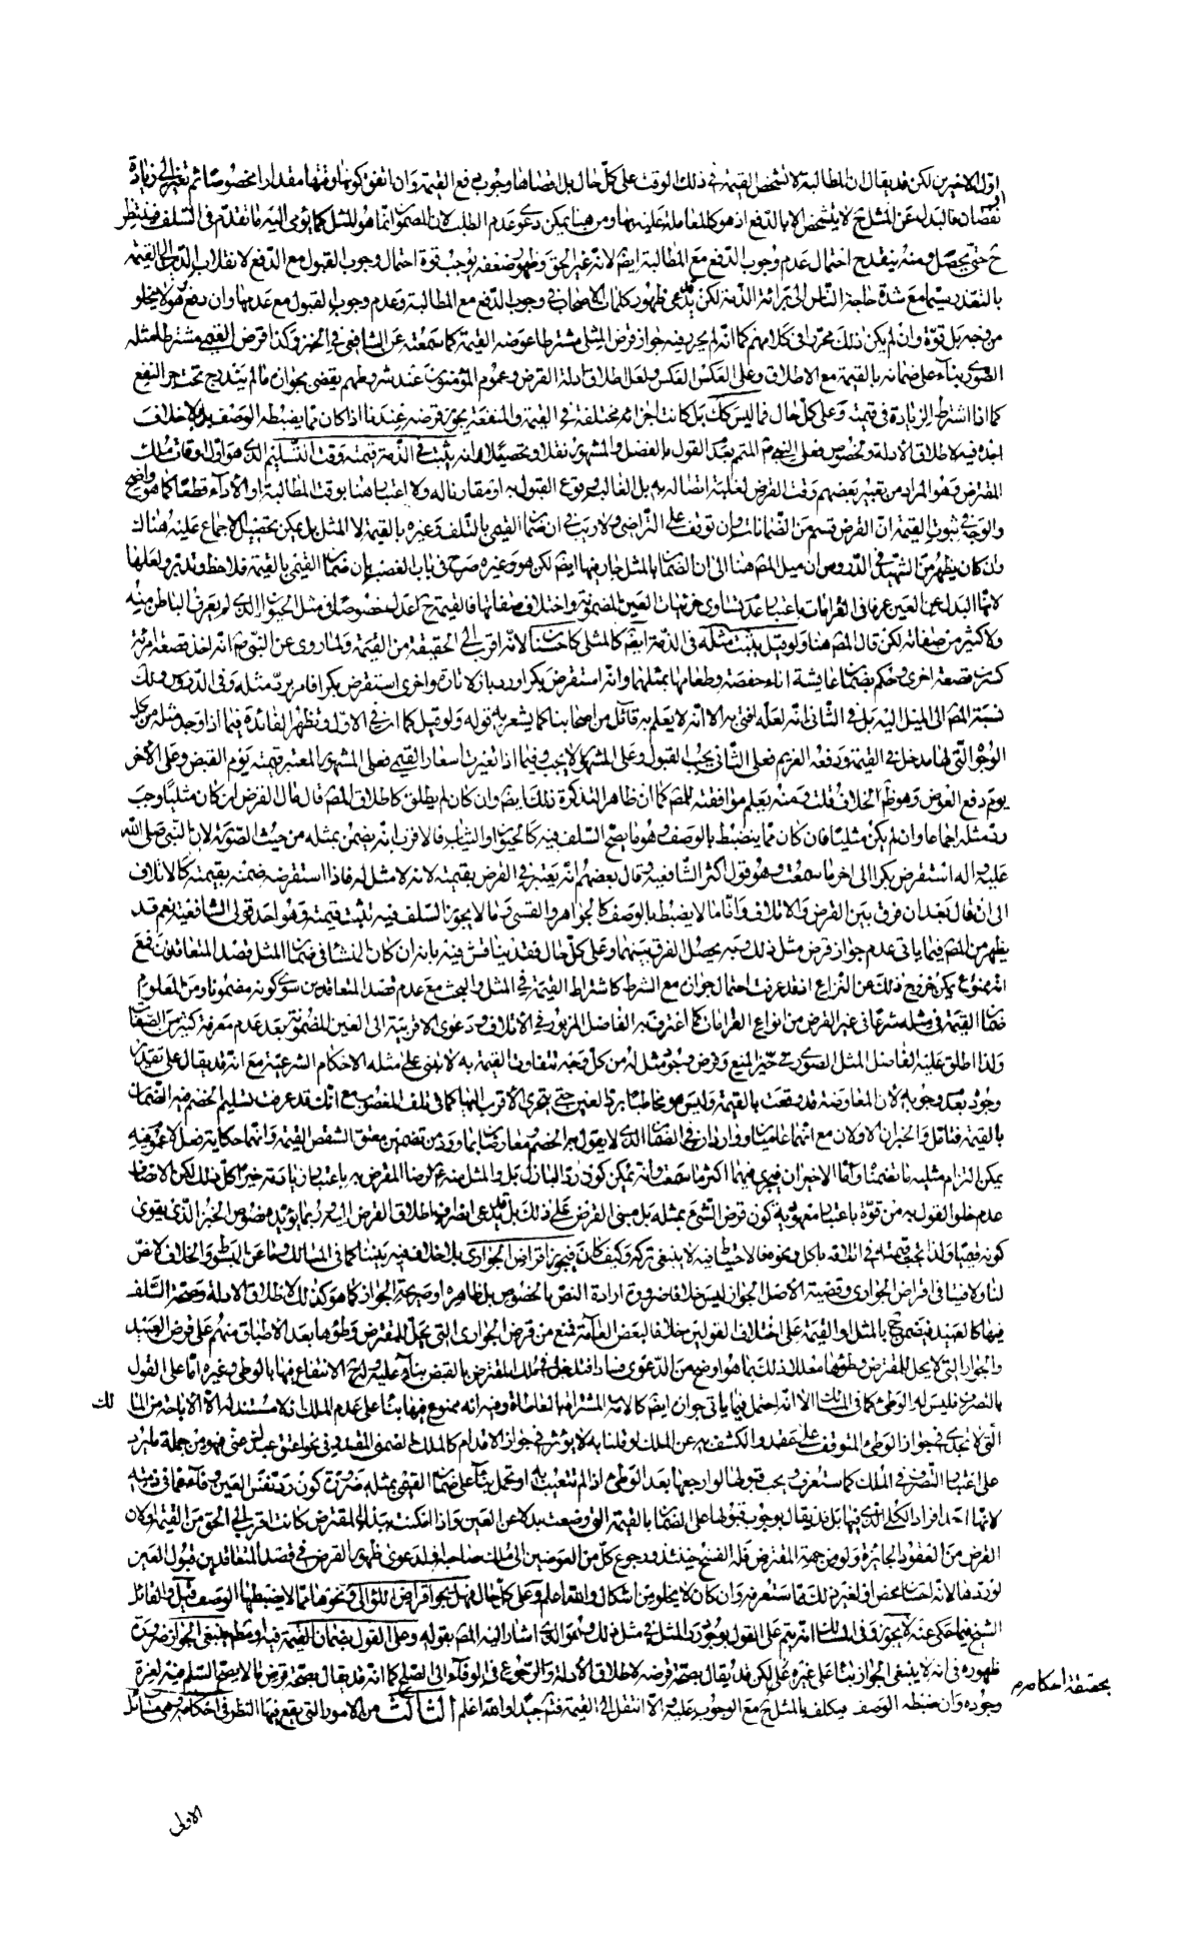 اول الاخيرين لكن قد يقال ان المطالبة لا تشخص القيمة في ذلك الوقت على كل حال بل اقصاها وجوب دفع القيمة وان اتفق كونها وقتها مقدارا مخصوصا ثم تغير الى زيادة
او نقصان فالبدل عن المثل ح لا يتشخص الا بالدفع اذ هو كالمعاملة عليه بها ومن هنا يمكن دعوى عدم الطلب لان المضمون انما هو المثل كما يومي اليه ما تقدم في السلف فينتظر
ح حتى يحصل ومنه ينقدح احتمال عدم وجوب الدفع مع المطالبة ايضا لانه غير الحق وظهور ضعفه يوجب قوة احتمال وجوب القبول مع الدفع لانقلاب الى القيمة
بالتعذر سيما مع شدة حاجة الناس الى برائة الذمة لكن قد يدعى ظهور كلمات الاصحاب في وجوب الدفع مع المطالبة وعدم وجوب القبول مع عدمها وان دفع هو لا يخلو
من وجه بل قوة وان لم يكن ذلك محررا في كلامهم كما انه لم يحرر فيه جواز قرض المثلي مشترطا عوضه القيمة كما سمعته عن الشافعي في الخبز وكذا قرض القيمي مشترطا مثله
الصوري بناء على ضمانه بالقيمة مع الاطلاق وعلى العكس العكس ولعل اطلاق ادلة القرض وعموم المؤمنون عند شروطهم يقضي بجوازه ما لم يندرج تحت جر النفع
كما اذا اشترط الزيادة في قيمته وعلى كل حال فما ليس كك بل كانت اجزائه مختلفة في القيمة والمنفعة يجوز قرضه عندنا اذا كان مما يضبطه الوصف بلا خلاف
اجده فيه لاطلاق الادلة وخصوص فعل النبي ص المتمم بعد القول بالفصل والمشهور نقلا وتحصيلا انه يثبت في الذمة قيمته وقت التسليم الذي هو اول اوقات ملك
المقترض وهو المراد من تعبير بعضهم وقت القرض لغلبة اتصاله به بل الغالب وقوع القبول به او مقارنا له ولا اعتبار هنا بوقت المطالبة او الاداء قطعا كما هو واضح
والوجه في ثبوت القيمة ان القرض قسم من الضمانات وان توقف على التراضي ولا ريب في ان ضمان القيمي بالتلف وغيره بالقيمة لا المثل بل يمكن تحصيل الاجماع عليه هناك
وان كان يظهر من الشهيد في الدروس ان ميل المص هنا الى ان الضمان بالمثل جار فيها ايضا لكن هو وغيره صرح في باب الغصب بان ضمان القيمي بالقيمة فلاحظ وتدبر ولعلها
لانها البدل عن العين عرفا في الغرامات باعتبار عدم تساوي جزئيات العين المضمونة واختلاف صفاتها فالقيمة ح اعدل خصوصا في مثل الحيوان الذي لم يعرف الباطن منه
ولا كثير من صفاته لكن قال المص هنا ولو قيل يثبت مثله في الذمة ايضا كالمثلي كان حسنا لانه اقرب الى الحقيقة من القيمة ولما روي عن النبي ص انه اخذ قصعة امرئة
كسرت قصعة اخرى وحكم بضمان عايشة اناء حفصة وطعامها بمثلهما وانه استقرض بكرا ورد بازلا تارة واخرى استقرض بكرا فامر برد مثله وفي الدروس وذلك
نسبة المص الى الميل اليه بل في الثاني انه لعله افتى به الا انه لا يعلم به قائل من اصحابنا كما يشعر به قوله ولو قيل كما ان في الاول وتظهر الفائدة فيما اذا وجد مثله من كل
الوجوه التي لها مدخل في القيمة ودفعه الغريم فعلى الثاني يجب القبول وعلى المشهور لا يجب وفيما اذا تغيرت اسعار القيمي فعلى المشهور المعتبر قيمته يوم القبض وعلى الاخر
يوم دفع العوض وهو ظاهر الخلاف قلت ومنه يعلم موافقته للمص كما ان ظاهر التذكرة ذلك ايضا وان كان لم يطلق كاطلاق المص قال مال القرض ان كان مثليا وجب
رد مثله اجماعا وان لم يكن مثليا فان كان مما ينضبط بالوصف وهو ما يصح السلف فيه كالحيوان والثياب فالاقرب انه يضمن بمثله من حيث الصورة لان النبي صلى الله
عليه واله استقرض بكرا الى اخر ما سمعت وهو قول اكثر الشافعية وقال بعضهم انه يعتبر في القرض بقيمته لانه لا مثل له فاذا استقرضه ضمنه بقيمته كالاتلاف
الى ان قال بعد ان فرق بين القرض والاتلاف واما ما لا يضبط بالوصف كالجواهر والقسي وما لا يجوز السلف فيه تثبت قيمته وهو احد قولي الشافعية نعم قد
يظهر من المص فيما ياتي عدم جواز قرض مثل ذلك وبه يحصل الفرق بينهما وعلى كل حال فقد يناقش فيه بانه ان كان المنشا في ضمان المثل قصد المتعاقدين فمع
انه ممنوع يمكن خروج ذلك عن النزاع اذ قد عرفت احتمال جوازه مع الشرط كاشتراط القيمة في المثل والبحث مع عدم قصد المتعاقدين سوى كونه مضمونا ومن المعلوم
ضمان القيمة في مثله شرعا في غير القرض من انواع الغرامات كما اعترف به الفاضل المزبور في الاتلاف ودعوى الاقربية الى العين المضمونة بعد عدم معرفة كثير من الصفات
ولذا اطلق عليه الفاضل المثل الصوري في حيز المنع وفرض وجود مثل له من كل وجه تتفاوت القيمة به لا يبنى على مثله الاحكام الشرعية مع انه قد يقال على تقدير
وجوده بعدم وجوبه لان المعاوضة قد وقعت بالقيمة وليس هو مخاطبا برد العين حتى يتحرى الاقرب اليها كما في تلف المغصوب مع انك قد عرفت تسليم الخصم فيه الضمان
بالقيمة فتامل والخبران الاولان مع انهما عاميان واردان في القضاء الذي لا يقول به الخصم ومعارضان بما ورد من تضمين معتق الشقص القيمة وانهما حكاية فعل لا عموم فيه
يمكن التزام مثليه ما تضمنا واما الاخيران فيجري فيهما اكثر ما سمعت وانه يمكن كون رد البازل بل والمثل منه ع لرضا المقرض به باعتبار زيادته خيرا كل ذلك لكن الانصاف
عدم خلو القول به من قوة باعتبار معهودية كون قرض الشيء بمثله بل مبنى القرض على ذلك بل قد يدعى انصراف اطلاق القرض اليه وربما يؤيده خصوص الخبر الذي يقوى
كونه قصيا ولذا تجب قيمته في اتلافه باكل ونحوه فالاحتياط فيه لا ينبغي تركه وكيف كان فيجوز اقراض الجواري بلا خلاف فيه بيننا كما في المسالك وما عن المبسوط والخلاف لا نص
لنا ولا فتيا في اقراض الجواري وقضية الاصل الجواز ليس خلافا ضرورة ارادة النص بالخصوص بل ظاهره او صريحه الجواز كما هو كذلك لاطلاق الادلة وصحة السلف
فيها كالعبيد فيضمن ح بالمثل او القيمة على اختلاف القولين خلافا لبعض العامة فمنع من قرض الجواري التي يحل للمقترض وطؤها بعد الاطباق منهم على قرض العبيد
والجواري التي لا يحل للمقترض وطئها معللا ذلك بما هو اوضح من الدعوى فسادا فتدخل في ملك المقترض بالقبض بناء عليه وله ح الانتفاع فيها بالوطي وغيره اما على القول
بالتصرف فليس له الوطي كما في المسالك الا انه احتمل فيما ياتي جوازه ايضا كالامة المشتراة بالمعاطاة وفيه انه ممنوع فيها بناء على عدم الملك اذ لا مستند له الا الاباحة من المالك
التي لا تجدي في جواز الوطي المتوقف على عقد والكشف به عن الملك لو قلنا به لا يؤثر في جواز الاقدام كالملك الضمني المقدر في نحو اعتق عبدك عني فهو من جملة ما يرد
على اعتبار التصرف في الملك كما ستعرف ويجب قبولها لو ارجعها بعد الوطي اذا لم تتعيب به او تحمل بناء على ضمان القيمي بمثله ضرورة كون رد نفس العين وفاء عما في ذمته
لانها احد افراد الكلي الذي فيها بل قد يقال بوجوب قبولها على الضمان بالقيمة التي وضعت بدلا عن العين واذا امكنت وبذلها المقترض كانت اقرب الى الحق من القيمة ولان
القرض من العقود الجائزة ولو من جهة المقترض فله الفسخ حينئذ ورجوع كل من العوضين الى ملك صاحبه ولدعوى ظهور القرض في قصد المتعاقدين قبول العين
لو ردها لانه احسان محض او لغير ذلك مما ستعرفه وان كان لا يخلو من اشكال والله اعلم وعلى كل حال فهل يجوز اقراض اللئالي ونحوها مما لا يضبطها الوصف قيل والقائل
الشيخ فيما حكي عنه لا يجوز وفي المسالك انه يتم على القول بوجوب رد المثل في مثل ذلك وهو الذي اشار اليه المص بقوله وعلى القول بضمان القيمة فيه او مطلقا ينبغي الجواز ضرورة
ظهوره في انه لا ينبغي الجواز بناء على غيره على لكن قد يقال بصحة قرضه لاطلاق الادلة والرجوع في الوفاء الى الصلح كما انه قد يقال بصحة قرض ما لا يصح السلم فيه لعزة
وجوده وان ضبطه الوصف فيكلف بالمثل ح مع الوجوب عليه والا انتقل الى القيمة فتم جيدا والله اعلم الثالث من الامور التي يقع فيها النظر في احكامه وهي مسائل
الاولى